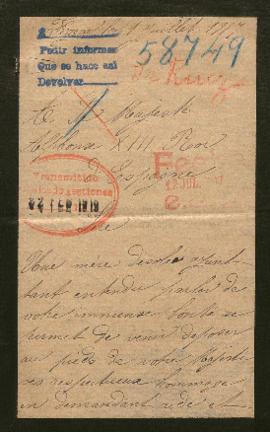 Juillet 1917
Pedir informes
Que se hace así
Devolver
58749
A Sa Majesté
Alphonse XIII Roi
d'Espagne
Transmitido
22 FEB 1918
JUL.
Sire
Une mère désolée ayant
tant entendu parler de
votre immense bonté se
permet de venir déposer
au pieds de votre Majesté
ses respectueux hommages
en demandant aide et